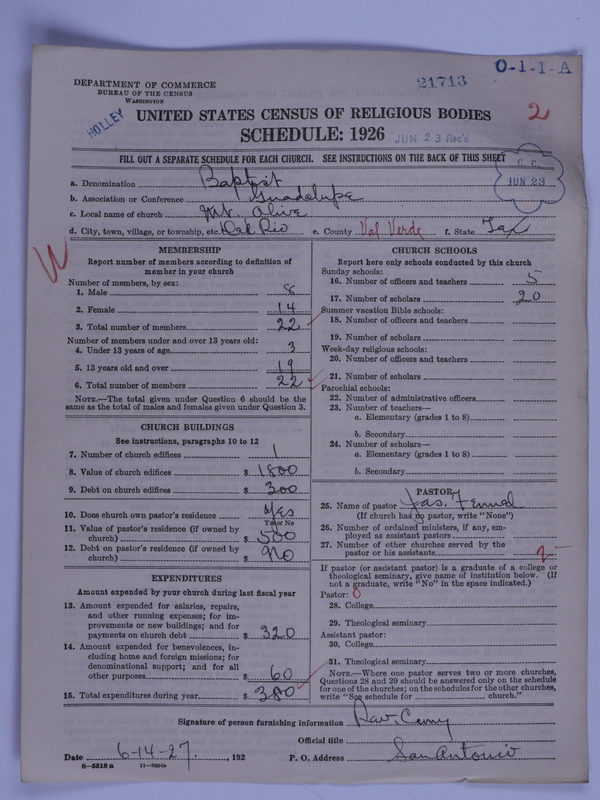 O-1-1-A
21713
DEPARTMENT OF COMMERCE
BUREAU OF THE CENSUS
WASHINGTON
2
HOLLEY
UNITED STATES CENSUS OF RELIGIOUS BODIES
SCHEDULE: 1926
JUN 23 Rec'd
FILL OUT A SEPARATE SCHEDULE FOR EACH CHURCH. SEE INSTRUCTIONS ON THE BACK OF THIS SHEET
C. C.
JUN 23
a. Denomination Baptist
b. Association or Conference Guadalupe
c. Local name of church Mt. Olive
d. City, town, village, or township, etc. Del Rio e. County Val Verde f. State Tex
MEMBERSHIP
Report number of members according to definition of
member in your church
Number of members, by sex:
1. Male 8
2. Female 14
3. Total number of members 22
Number of members under and over 13 years old:
4. Under 13 years of age 3
5. 13 years old and over 19
6. Total number of members 22
NOTE.—The total given under Question 6 should be
same as the total of males and females given under Question 3.
CHURCH BUILDINGS
See instructions, paragraphs 10 to 12
7. Number of church edifices 1
8. Value of church edifices $ 1800
9. Debt on church edifices $ 300
10. Does church own pastor's residence Yes
Yes or No
11. Value of pastor's residence (if owned by
church) $ 500
12. Debt on pastor's residence (if owned by
church) $ no
EXPENDITURES
Amount expended by your church during last fiscal year
13. Amount expended for salaries, repairs,
and other running expenses; for im-
provements or new buildings; and for
payments on church debt $ 320
14. Amount expended for benevolences, in-
cluding home and foreign missions; for
denominational support; and for all
other purposes $ 60
15. Total expenditures during year $ 380
CHURCH SCHOOLS
Report here only schools conducted by this church
Sunday schools:
16. Number of officers and teachers 5
17. Number of scholars 20
Summer vacation Bible schools:
18. Number of officers and teachers
19. Number of scholars
Week-day religious schools:
20. Number of officers and teachers
21. Number of scholars
Parochial schools:
22. Number of administrative officers
23. Number of teachers—
a. Elementary (grades 1 to 8)
b. Secondary
24. Number of scholars—
a. Elementary (grades 1 to 8)
b. Secondary
PASTOR
25. Name of pastor Jas.
(If church has no pastor, write "None")
26. Number of ordained ministers, if any, em-
ployed as assistant pastors
27. Number of other churches served by the
pastor or his assistants
If pastor (or assistant pastor) is a graduate of a college or
theological seminary, give name of institution below. (If
not a graduate, write "No" in the space indicated.)
Pastor: 0
28. College
29. Theological seminary
Assistant pastor:
30. College
31. Theological seminary
NOTE.—Where one pastor serves two or more churches,
Questions 28 and 29 should be answered only on the schedule
for one of the churches; on the schedules for the other churches,
write "See schedule for church."
Signature of person furnishing information
Official title
Date 6-14-27, 192 P. O. Address San Antonio
8-5518a